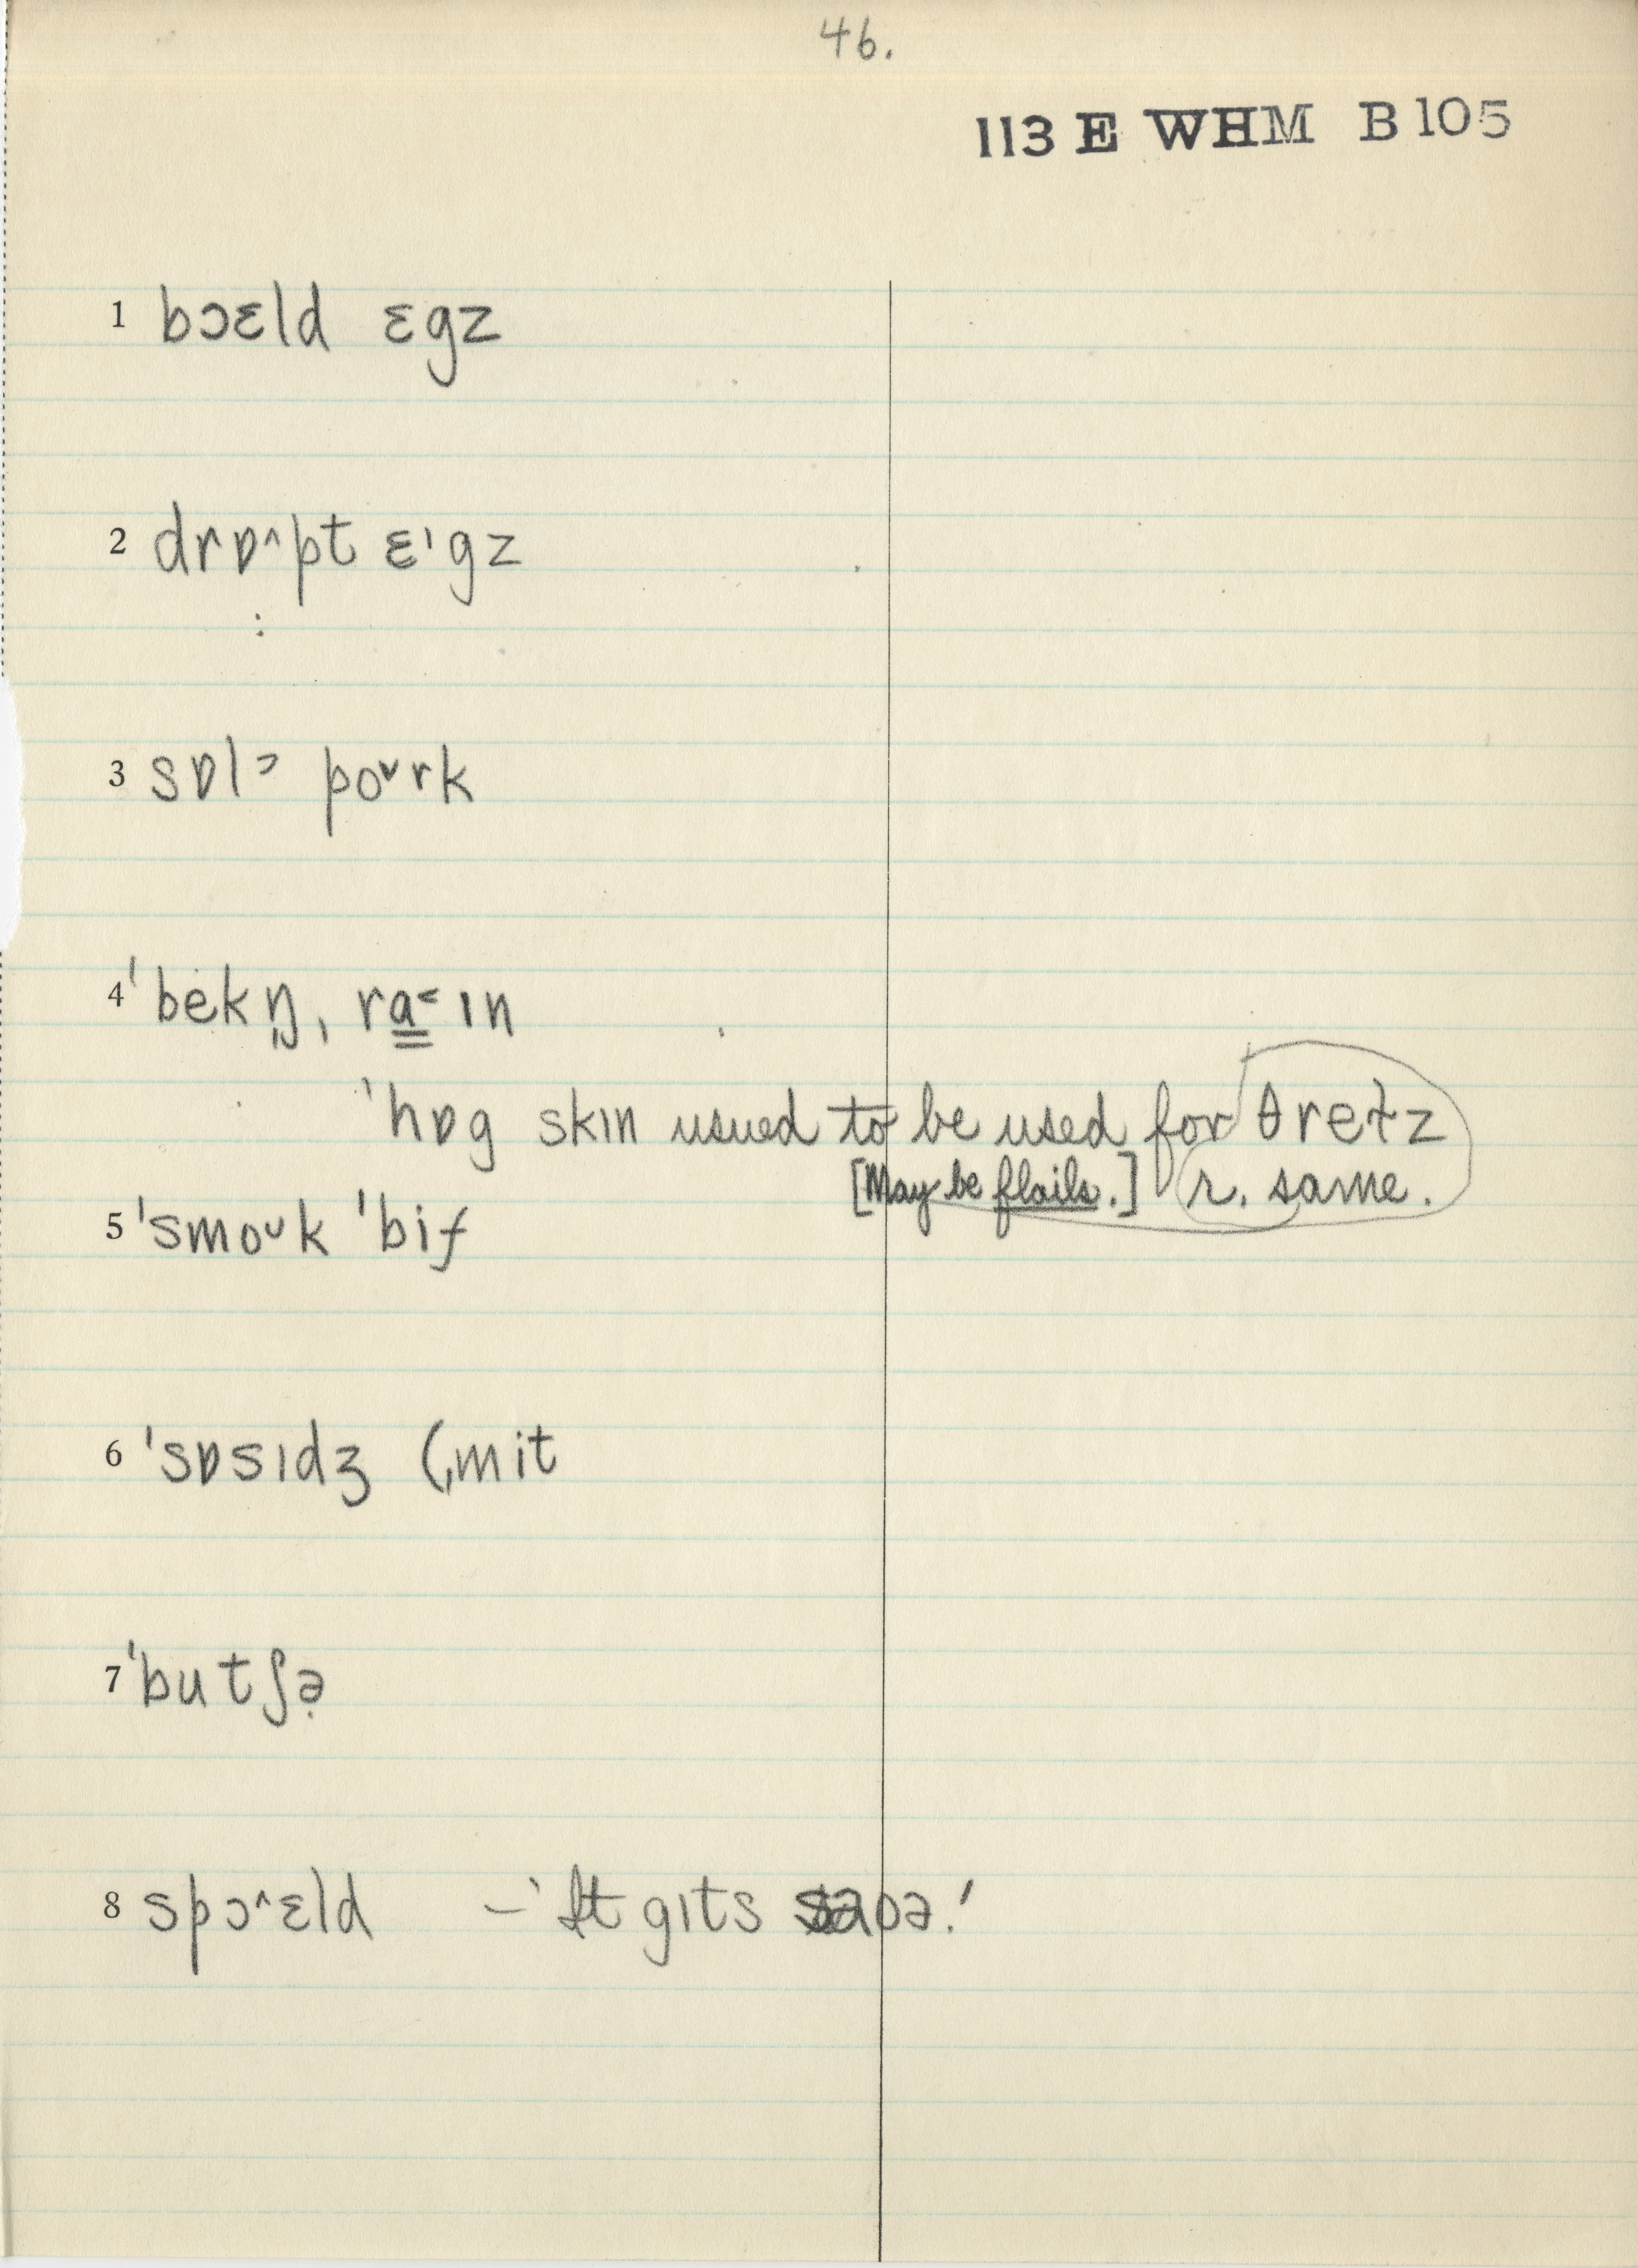 46.
113 E WHM B 105
1 bɔɛld ɛgz
2 drɒ^pt ɛˈgz
3 sɒlˀ poᵛrk
4 ˈbekŋ̩, ra̳˂ɪn
ˈhɒg skɪn usued to be used for θreɫz
[May be flails.] r. same.
5 ˈsmoᴗk ˈbif
6 ˈsɒsɪdʒ (ˌmit
7 ˈbutʃə̣
8 spɔ^ɛld – ˈIt gɪts saʊə.ˈ